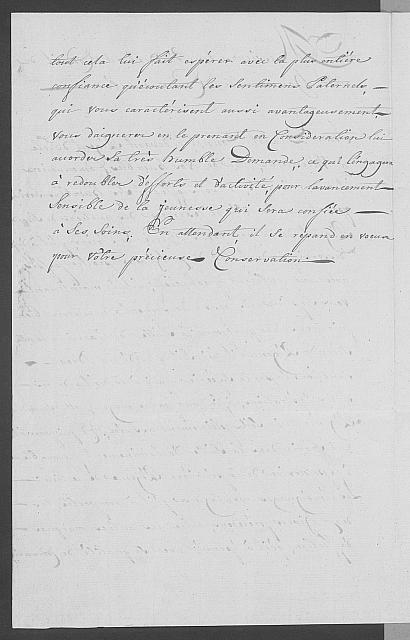 tout cela lui fait espérer avec la plus entière
confiance qu'écoutant les sentimens Paternels,
qui vous caractérisent aussi avantageusement
vous daignerez en le prenant en Considération lui
accorder sa très humble Demande, ce qui l'engagera
à redoubler d'efforts et d'activité pour l'avancement
sensible de la jeunesse qui sera confiée
à ses soins. En attendant il se répand en voeux
pour Votre précieuse Conservation.